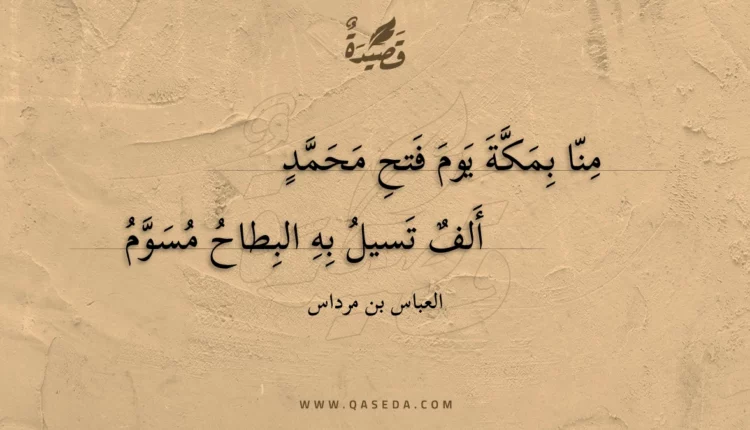 قَصِيدَةٌ
مِنّا بِمَكَّةَ يَومَ فَتحِ مَحَمَّدٍ
أَلفٌ تَسيلُ بِهِ البِطاحُ مُسَوَّمُ
العباس بن مرداس
WWW.QASEDA.COM